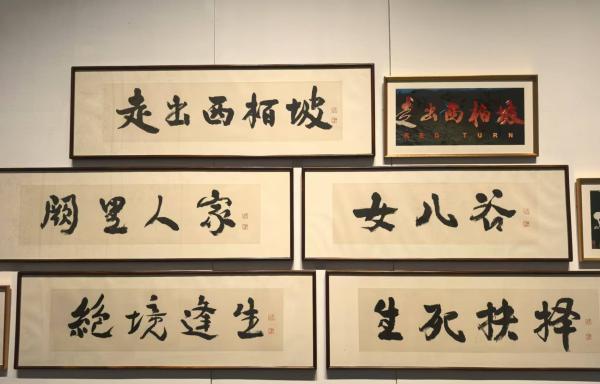 走出西柏坡
走出西柏坡
RED TURN
阙里人家
女儿谷
絶境逢生
生死抉择